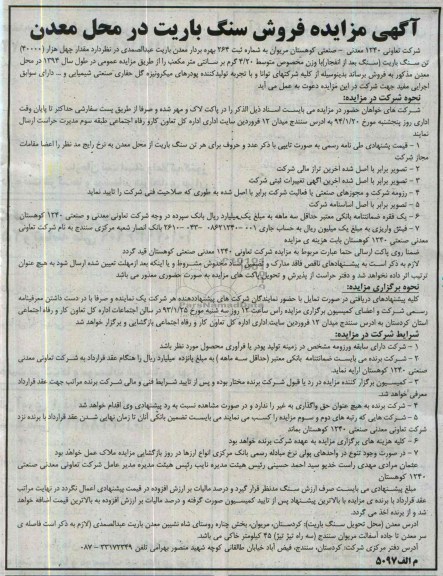 آگهی مزایده فروش سنگ باریت در محل معدن
شرکت تعاونی ۱۲۴۰ معدنی - صنعتی کوهستان مریوان به شماره ثبت ۲۶۴ بهره بردار معدن باریت عبدالصمدی در نظر دارد مقدار چهل هزار
تن سنگ باریت (سنگ بعد از انفجار) با وزن مخصوص متوسط ۴/۲۰ گرم بر سانتی متر مکعب را از طریق مزایده عمومی در طول سال ۱۳۹۴ در محل
معدن مذکور به فروش برساند بدینوسیله از کلیه شرکتهای توانا و با تجربه تولیدکننده پودرهای میکرونیزه گل حفاری صنعتی شیمیایی و .. دارای سوابق
اجرایی مفید جهت شرکت در این مزایده دعوت به عمل می آید
نحوه شرکت در مزایده:
شرکت های خواهان حضور در مزایده می بایست اسناد ذیل الذکر را در پاکت لاک و مهر شده و صرفا از طریق پست سفارشی حداکثر تا پایان وقت
اداری روز پنجشنبه مورخ ۹۴/۱/۲۰ به ادرس سنندج میدان ۱۲ فروردین سایت اداری اداره کل تعاون کار و رفاه اجتماعی طبقه سوم مدیریت حراست ارسال
نمایند
۱ - قیمت پیشنهادی طی نامه رسمی به صورت تایپی با ذکر عدد و حروف برای هر تن سنگ باریت از محل معدن به نرخ رایج مد نظر را امضا مقامات
مجاز شرکت
۲ - تصویر برابر با اصل شده آخرین تراز مالی شرکت
۳ - تصویر برابر با اصل شده اخرین آگهی تغییرات ثبتی شرکت
۴ - رزومه شرکت و مجوزهای صنعتی یا فعالیت شرکت برابر با اصل شده به طوری که صلاحیت فنی شرکت را تایید نماید
۵ - تصویر برابر با اصل اساسنامه شرکت
۶ - یک فقره ضمانتنامه بانکی معتبر حداقل سه ماهه به مبلغ یک میلیارد ریال بانک سپرده در وجه شرکت تعاونی معدنی و صنعتی ۱۲۴۰ کوهستان
۷ - فیش واریزی به مبلغ یک میلیون ریال به حساب جاری بانک انصار شعبه مرکزی سنندج به نام شرکت تعاونی
معدنی صنعتی ۱۲۴۰ کوهستان بابت هزینه ی مزایده
ضمنا روی پاکت ارسالی حتما عبارت مربوط به مزایده شرکت تعاونی ۱۲۴۰ معدنی صنعتی کوهستان قید گردد
لازم به ذکر است به پیشنهادهای ناقص فاقد مدارک و مستندات اسناد مخدوش مشروط و یا اینکه بعد از مهلت تعیین شده ارسال شود به هیچ عنوان
ترتیب اثر داده نخواهد شد و دفتر حراست از پذیرش و تحویل پاکت های مزایده به صورت حضوری معذور می باشد
نحوه برگزاری مزایده:
کلیه پیشنهادهای دریافتی در صورت تمایل با حضور نمایندگان شرکت های پیشنهاددهنده هر شرکت یک نماینده و صرفا با در دست داشتن معرفینامه
رسمی شرکت و اعضای کمیسیون برگزاری مزایده راس ساعت ۱۲ روز سه شنبه مورخ در سالن اجتماعات اداره کل تعاون کار و رفاه اجتماعی
استان کردستان به ادرس سنندج میدان ۱۲ فروردین سایت اداری اداره کل تعاون کار و رفاه اجتماعی بازگشایی و برگزار خواهد شد
شرایط شرکت در مزایده:
۱ - شرکت دارای سابقه ورزومه مشخص در زمینه تولید پودر یا فرآوری محصول مورد نظر باشد
۲ - شرکت برنده می بایست ضمانتنامه بانکی معتبر (حداقل سه ماهه) به مبلغ پانزده میلیارد ریال را هنگام عقد قرارداد به شرکت تعاونی معدنی
صنعتی ۱۲۴۰ کوهستان ارایه نماید.
۳ - کمیسیون برگزار کننده مزایده در رد یا قبول شرکت برنده مختار بوده و پس از تایید شرایط فنی و مالی شرکت برنده مراتب جهت عقد قرارداد
معرفی خواهد شد.
۴ - شرکت برنده به هیچ عنوان حق واگذاری به غیر را ندارد و در صورت مشاهده نسبت به رد پیشنهادی وی اقدام خواهد شد
۵ - شرکت هایی که رتبه های دوم و سوم مزایده را کسب می نمایند می بایست تضمین بانکی آنان تا زمان نهایی شدن عقد قرارداد با برنده نزد
شرکت تعاونی معدنی صنعتی ۱۲۴۰ کوهستان بماند
۶ - کلیه هزینه های برگزاری مزایده به عهده شرکت برنده خواهد بود
۷ - در صورت وجود تنوع در واحدهای پولی نرخ مبادله رسمی بانک مرکزی انواع ارزها در روز بازگشایی مزایده ملاک عمل خواهد بود
عثمان مرادی مهدی راست خدیو سید احمد حسینی رئیس هیئت مدیره نایب رئیس هیئت مدیره مدیر عامل شرکت تعاونی معدنی صنعتی
۱۲۴۰ کوهستان
مبلغ پیشنهادی می بایست صرف ارزش سنگ مدنظر قرار گیرد و درصد مالیات بر ارزش افزوده در قیمت پیشنهادی اعمال نگردد در نهایت مراتب
عقد قرارداد با برنده ی مزایده با بالاترین پیشنهاد پس از تایید کمیسیون صورت گرفته و درصد مالیات بر ارزش افزوده به بالاترین قیمت اضافه خواهد
شد و از برنده اخذ می گردد.
ادرس معدن (محل تحویل سنگ باریت): کردستان، مریوان، بخش چناره روستای شاه نشین معدن باریت عبدالصمدی (لازم به ذکر است فاصله ی
سر معدن تا جاده آسفالت مریوان سنندج (سه راه تیژ تیژ) ۴۵ کیلومتر خاکی می باشد.
آدرس دفتر مرکزی شرکت: کردستان، سنندج، فیض آباد خیابان طالقانی کوچه شهید منصور بهرامی تلفن ۳۳۱۷۲۳۴۹ - ۰۸۷
م الف ۵۰۹۷